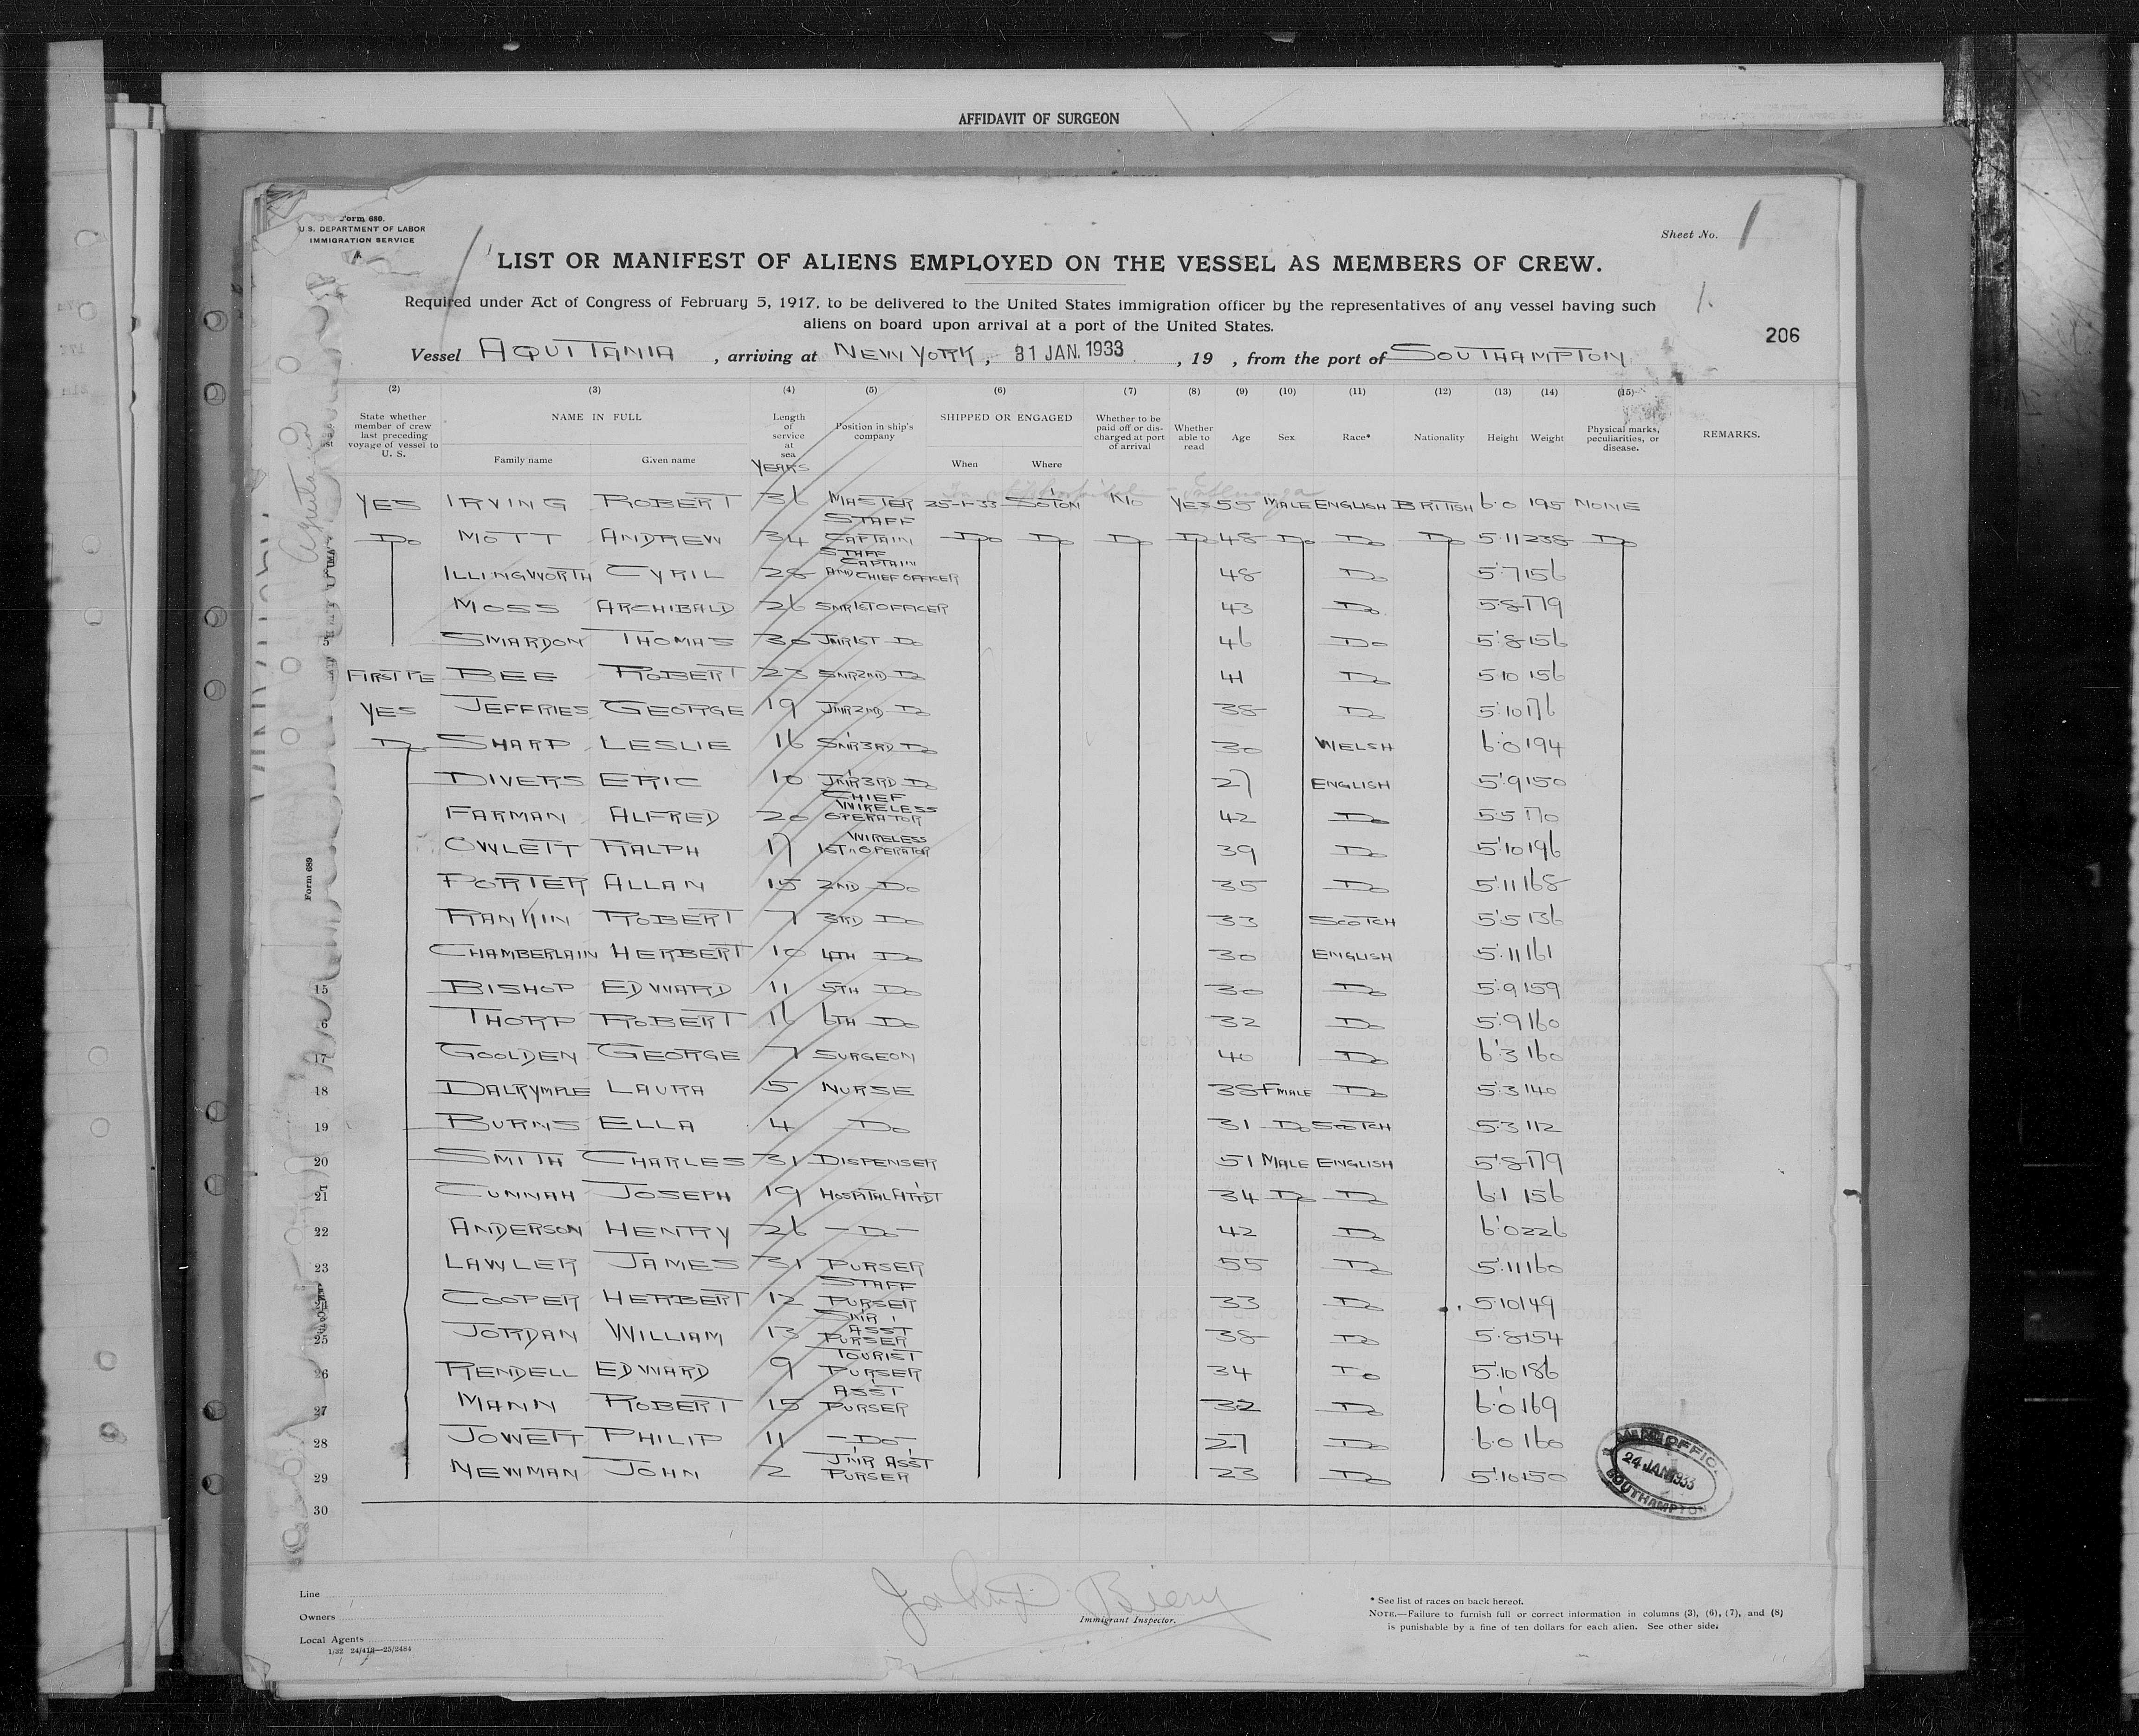 AFFIDAVIT OF SURGEON
Form 680.
U.S. DEPARTMENT OF LABOR
IMMIGRATION SERVICE
Sheet No. 1
LIST OR MANIFEST OF ALIENS EMPLOYED ON THE VESSEL AS MEMBERS OF CREW.
Required under Act of Congress of February 5, 1917, to be delivered to the United States immigration officer by the representatives of any vessel having such
aliens on board upon arrival at a port of the United States.
1.
206
Vessel AQUITANIA, arriving at NEW YORK, 31 JAN. 1933, 19 , from the port of SOUTHAMPTON
(2) (3) (4) (5) (6) (7) (8) (9) (10) (11) (12) (13) (14) (15)
State whether member of crew last preceding voyage of vessel to U. S. NAME IN FULL Family name Given name Length of service at sea YEARS Position in ship's company SHIPPED OR ENGAGED When Where Whether to be paid off or discharged at port of arrival Whether able to read Age Sex Race* Nationality Height Weight Physical marks, peculiarities, or disease. REMARKS.
YES IRVING ROBERT 36 MASTER 25-1-33 SOTON NO YES 55 MALE ENGLISH BRITISH 6.0 195 NONE
DO MOTT ANDREW 34 STAFF CAPTAIN DO DO DO DO 48 DO DO DO 5.11 238 DO
ILLINGWORTH CYRIL 28 STAFF CAPTAIN AND CHIEF OFFICER 48 DO 5'7 156
MOSS ARCHIBALD 26 SNR 1ST OFFICER 43 DO 5.8 179
SMARDON THOMAS 30 JNR 1ST DO 46 DO 5'.8 156
FIRST TE BEE ROBERT 23 SNR 2ND DO 41 DO 5.10 156
YES JEFFRIES GEORGE 19 JNR 2ND DO 38 DO 5'.10 176
DO SHARP LESLIE 16 SNR 3RD DO 30 WELSH 6'.0 194
DIVERS ERIC 10 JNR 3RD DO 27 ENGLISH 5'.9 150
FARMAN ALFRED 20 CHIEF WIRELESS OPERATOR 42 DO 5.5 170
OWLETT RALPH 17 1ST WIRELESS OPERATOR 39 DO 5'.10 196
PORTER ALLAN 15 2ND DO 35 DO 5'.11 168
RANKIN ROBERT 7 3RD DO 33 SCOTCH 5'.5 136
CHAMBERLAIN HERBERT 10 4TH DO 30 ENGLISH 5'.11 161
15 BISHOP EDWARD 11 5TH DO 30 DO 5'.9 159
6 THORP ROBERT 16 6TH DO 32 DO 5'.9 160
17 GOOLDEN GEORGE 7 SURGEON 40 DO 6'.3 160
18 DALRYMPLE LAURA 5 NURSE 38 FMALE DO 5'.3 140
19 BURNS ELLA 4 DO 31 DO SCOTCH 5.3 112
20 SMITH CHARLES 31 DISPENSER 51 MALE ENGLISH 5'.8 179
21 CUNNAH JOSEPH 19 HOSPITAL ATTDT 34 DO DO 6.1 156
22 ANDERSON HENRY 26 -DO- 42 DO 6'.0 226
23 LAWLER JAMES 31 PURSER 55 DO 5'.11 160
COOPER HERBERT 12 STAFF PURSER 33 DO 5.10 149
25 JORDAN WILLIAM 13 SNR ASST PURSER 38 DO 5'.8 154
26 RENDELL EDWARD 9 TOURIST PURSER 34 DO 5'.10 186
27 MANN ROBERT 15 ASST PURSER 32 DO 6'.0 169
28 JOWETT PHILIP 11 -DO- 27 DO 6.0 160
29 NEWMAN JOHN 2 JNR ASST PURSER 23 DO 5'.10 150
30
Form 689
24 JAN 1933
SOUTHAMPTON
Line
Owners
Local Agents
John D. Biery
Immigrant Inspector.
* See list of races on back hereof.
NOTE.—Failure to furnish full or correct information in columns (3), (6), (7), and (8)
is punishable by a fine of ten dollars for each alien. See other side.